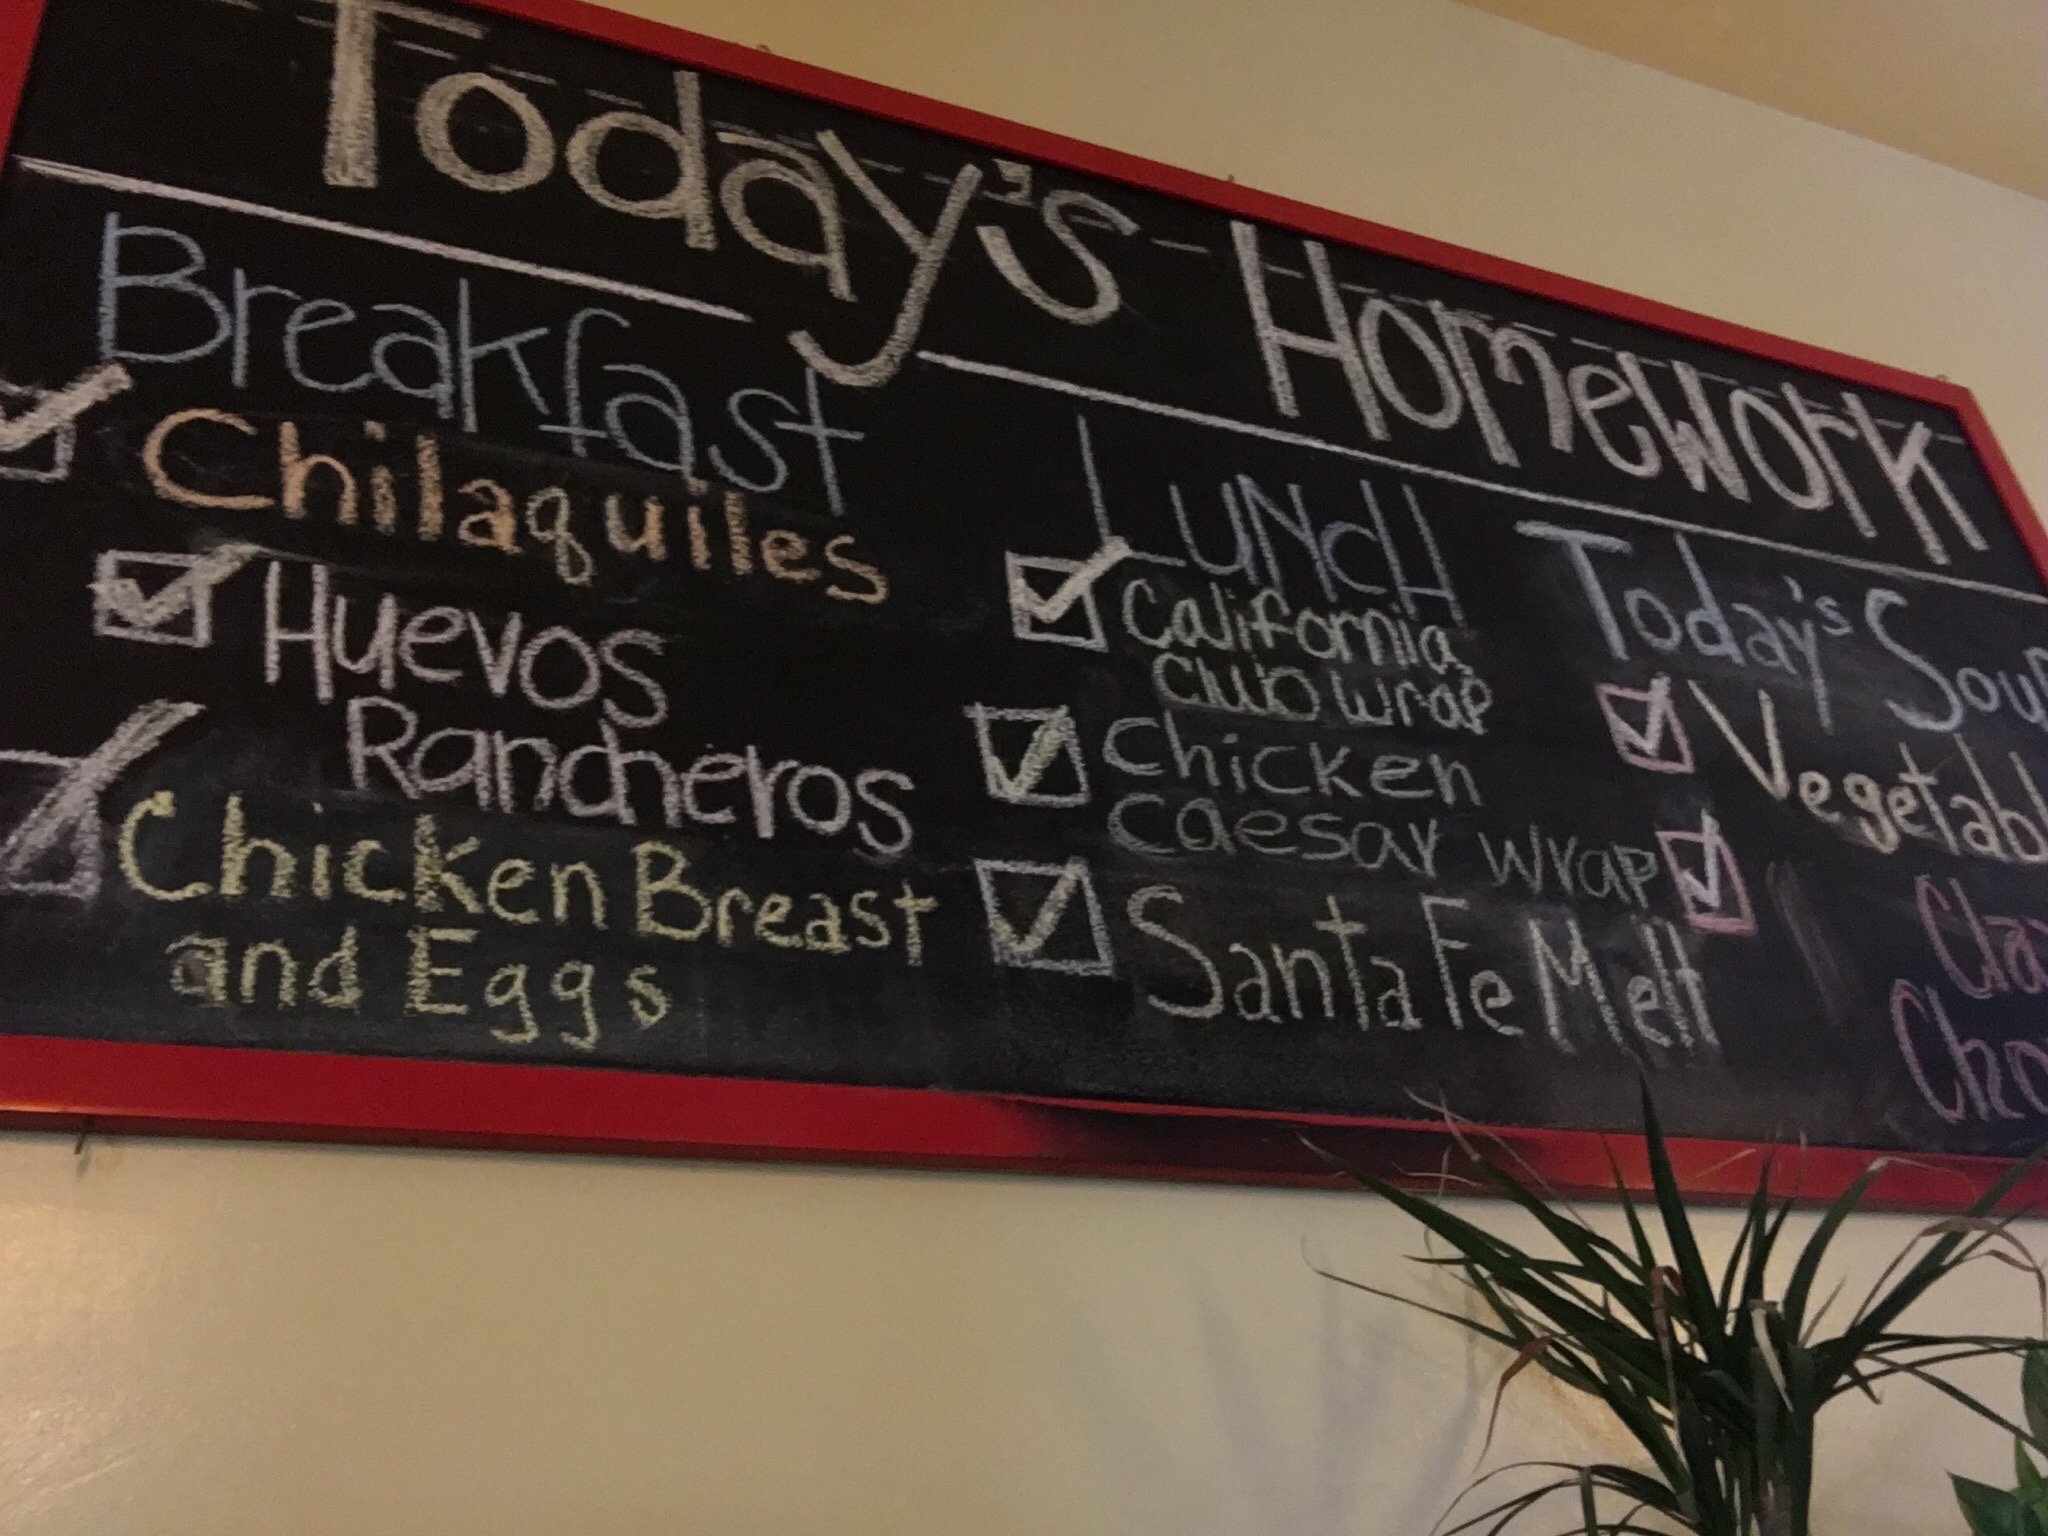 Today's Homework
Breakfast
Chilaquiles
Huevos
Rancheros
Chicken Breast
and Eggs
LUNcH
California
Club wrap
Chicken
caesar wrap
Santa Fe Melt
Today's Soup